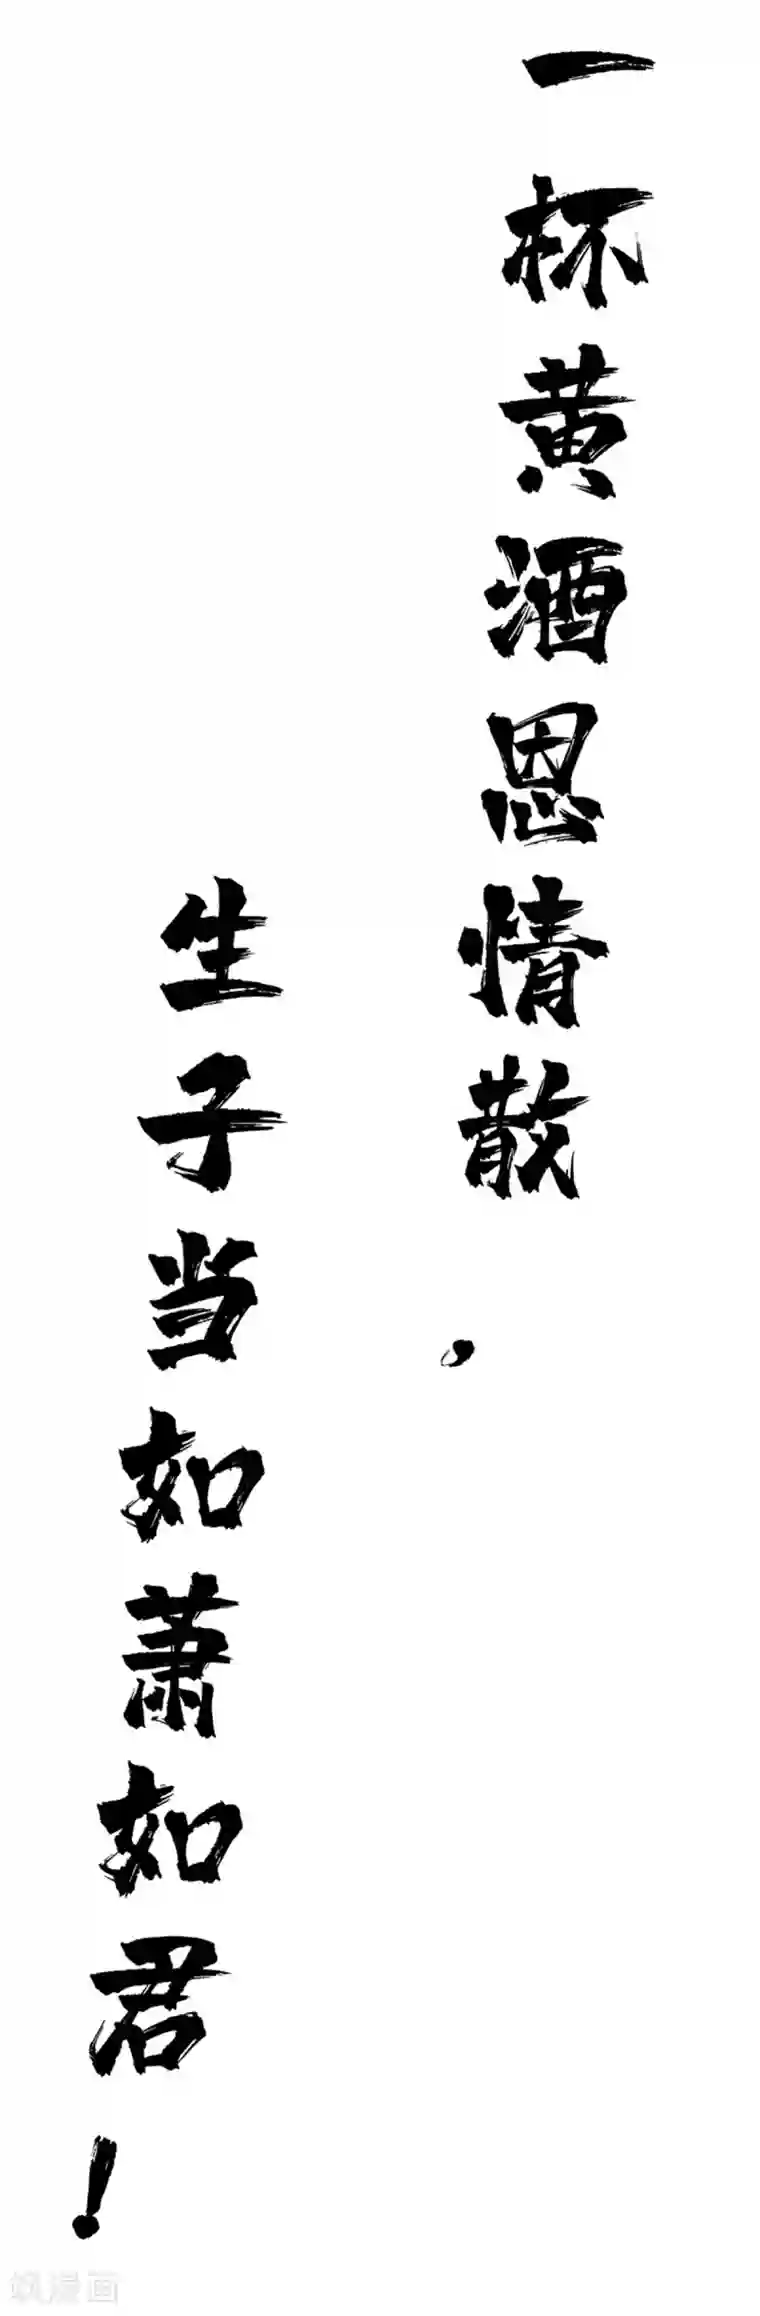 一杯黄酒恩情散，
生子当如萧如君！
飒漫画